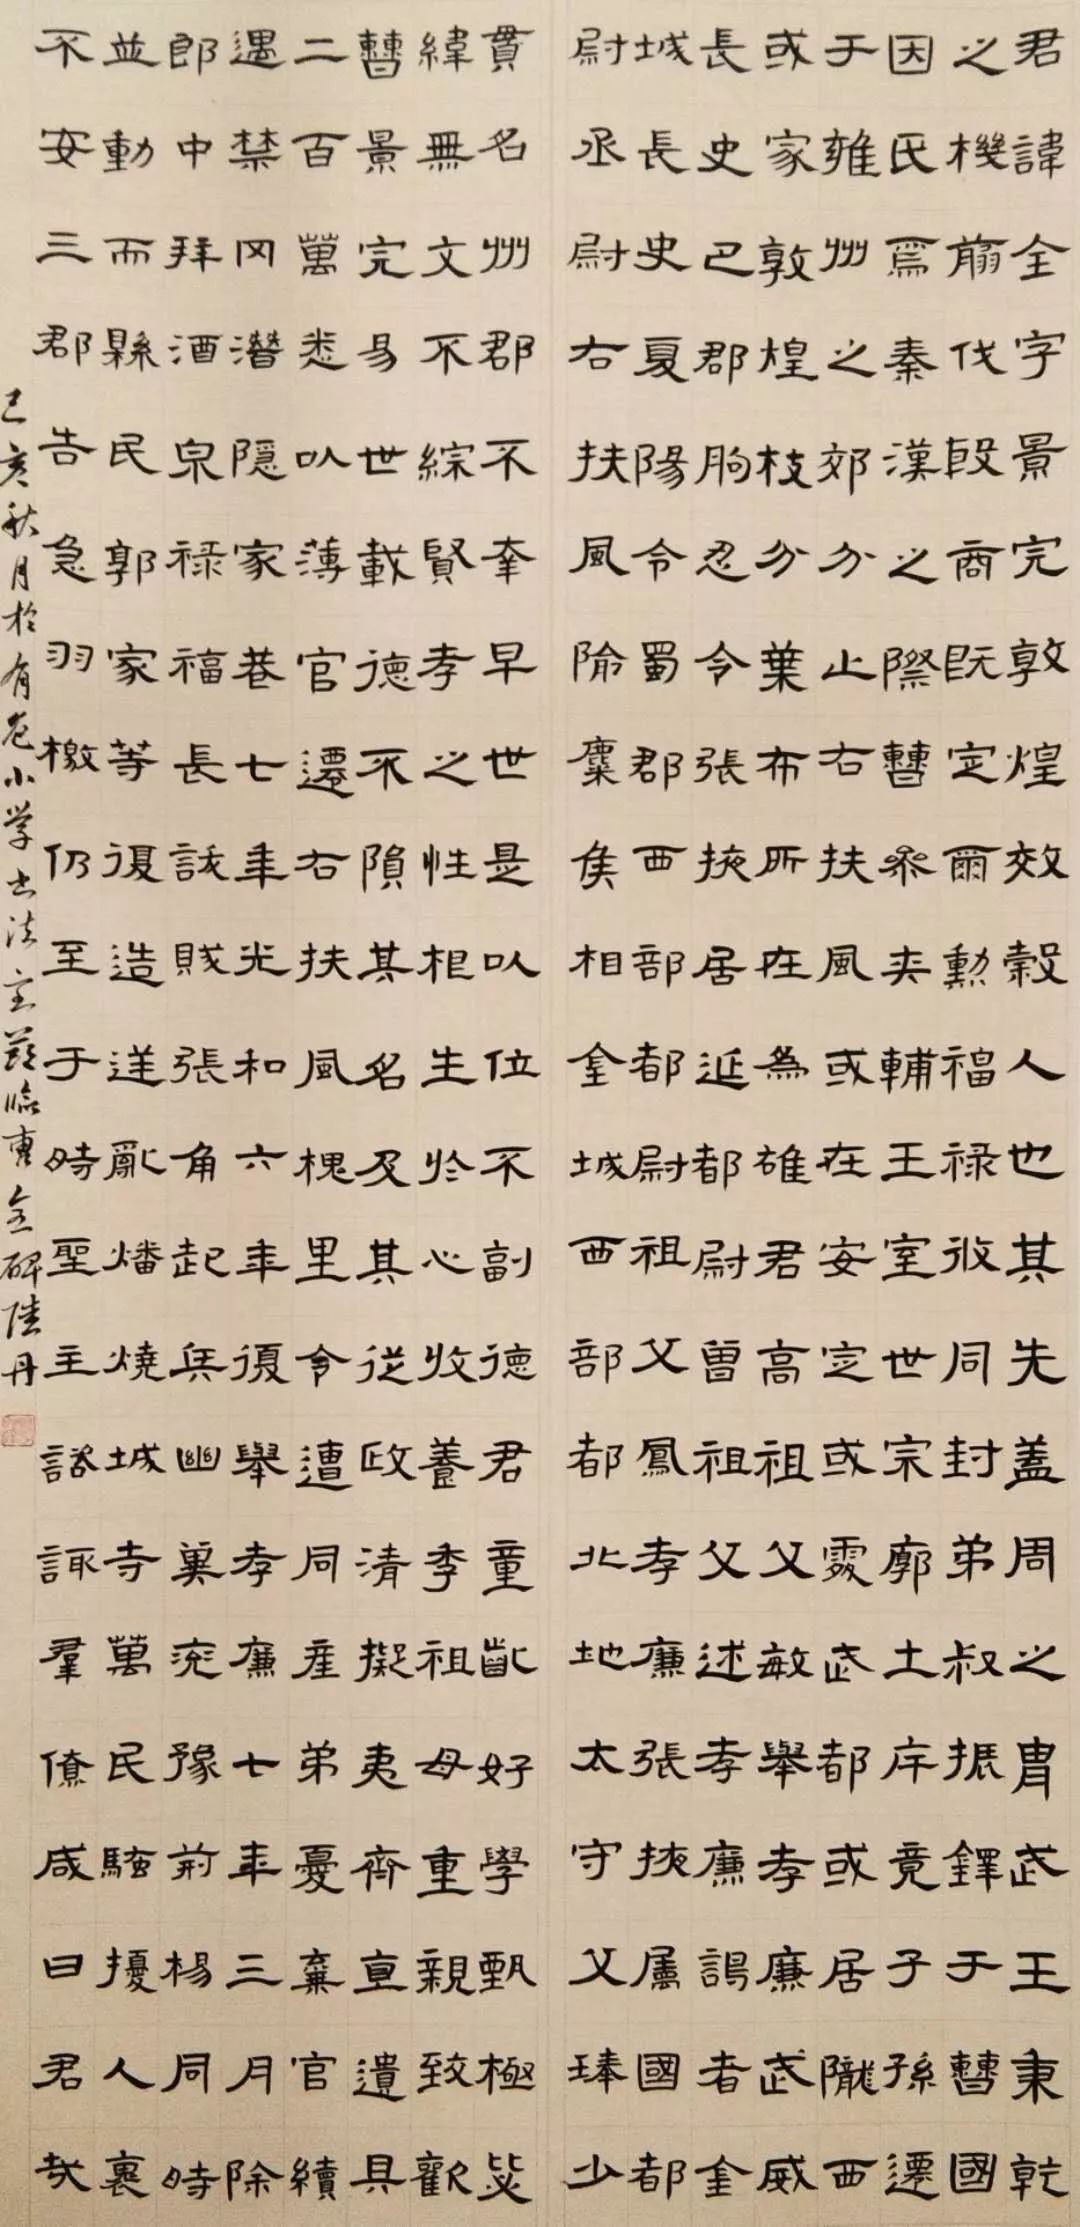 君諱全字景完敦煌效穀人也其先蓋周之胄武王秉乾
之機翦伐殷商既定爾勳福祿攸同封弟叔振鐸于曹國
因氏焉秦漢之際曹參夾輔王室世宗廓土斥竟子孫遷
于雍州之郊分止右扶風或在安定或處武都或居隴西
或家敦煌枝分葉布所在為雄君高祖父敏舉孝廉武威
長史巴郡朐忍令張掖居延都尉曾祖父述孝廉謁者金
城長史夏陽令蜀郡西部都尉祖父鳳孝廉張掖屬國都
尉丞尉右扶風隃麋侯相金城西部都北地太守父琫少
貫名州郡不幸早世是以位不副德君童齔好學甄極毖
緯無文不綜賢孝之性根生於心收養季祖母重親致歡
曹景完易世載德不隕其名及其從政清擬夷齊直遺具
二百萬悉以薄官遷右扶風槐里令遭同產弟憂棄官續
遇禁冈潛隱家巷七年光和六年復舉孝廉七年三月除
郎中拜酒泉祿福長訞賊張角起兵幽冀兗豫荊楊同時
並動而縣民郭家等復造逆亂燔燒城寺萬民騷擾人裏
不安三郡告急羽檄仍至于時聖主諮諏羣僚咸曰君哉
己亥秋月於有小学书法室節臨曹全碑陸丹